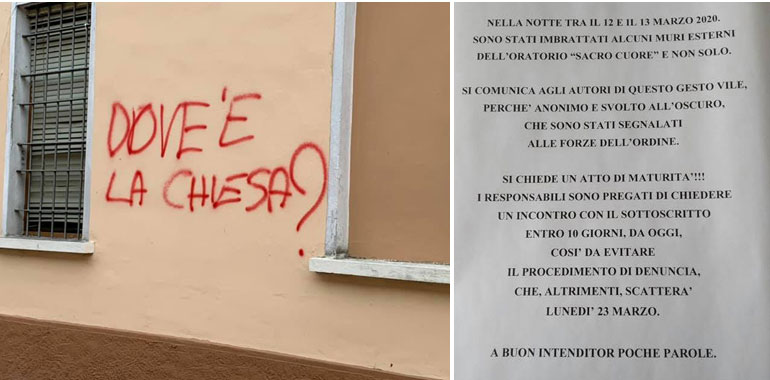 DOVE'È
LA CHIESA?
NELLA NOTTE TRA IL 12 E IL 13 MARZO 2020.
SONO STATI IMBRATTATI ALCUNI MURI ESTERNI
DELL'ORATORIO “SACRO CUORE” E NON SOLO.
SI COMUNICA AGLI AUTORI DI QUESTO GESTO VILE,
PERCHE' ANONIMO E SVOLTO ALL'OSCURO,
CHE SONO STATI SEGNALATI
ALLE FORZE DELL'ORDINE.
SI CHIEDE UN ATTO DI MATURITA'!!!
I RESPONSABILI SONO PREGATI DI CHIEDERE
UN INCONTRO CON IL SOTTOSCRITTO
ENTRO 10 GIORNI, DA OGGI,
COSI' DA EVITARE
IL PROCEDIMENTO DI DENUNCIA,
CHE, ALTRIMENTI, SCATTERA'
LUNEDI' 23 MARZO.
A BUON INTENDITOR POCHE PAROLE.